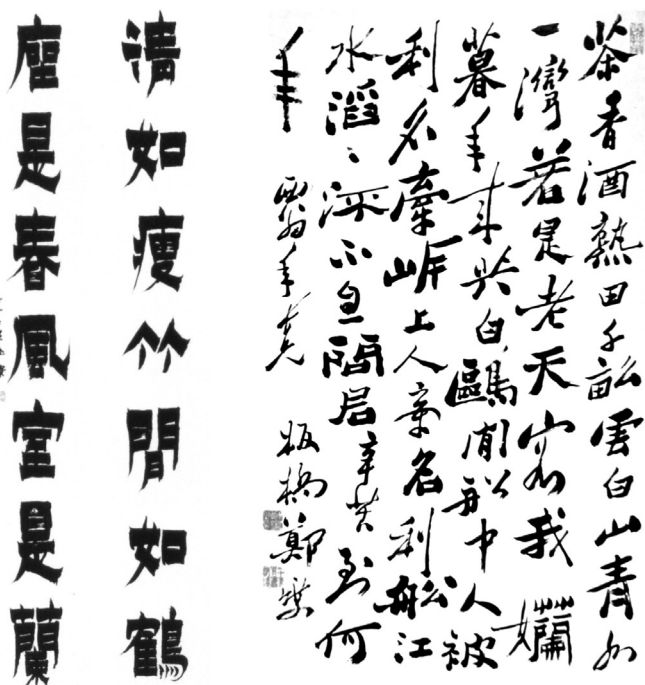 茶香酒熟田千畝雲白山青水
一灣若是老天容我嬾
暮年來與白鷗閒船中人被
利名牽岸上人牽名利船江
水滔〻流不息問君辛苦到何
年
翁年兄 板橋鄭燮
清如瘦竹閒如鶴
座是春風室是蘭